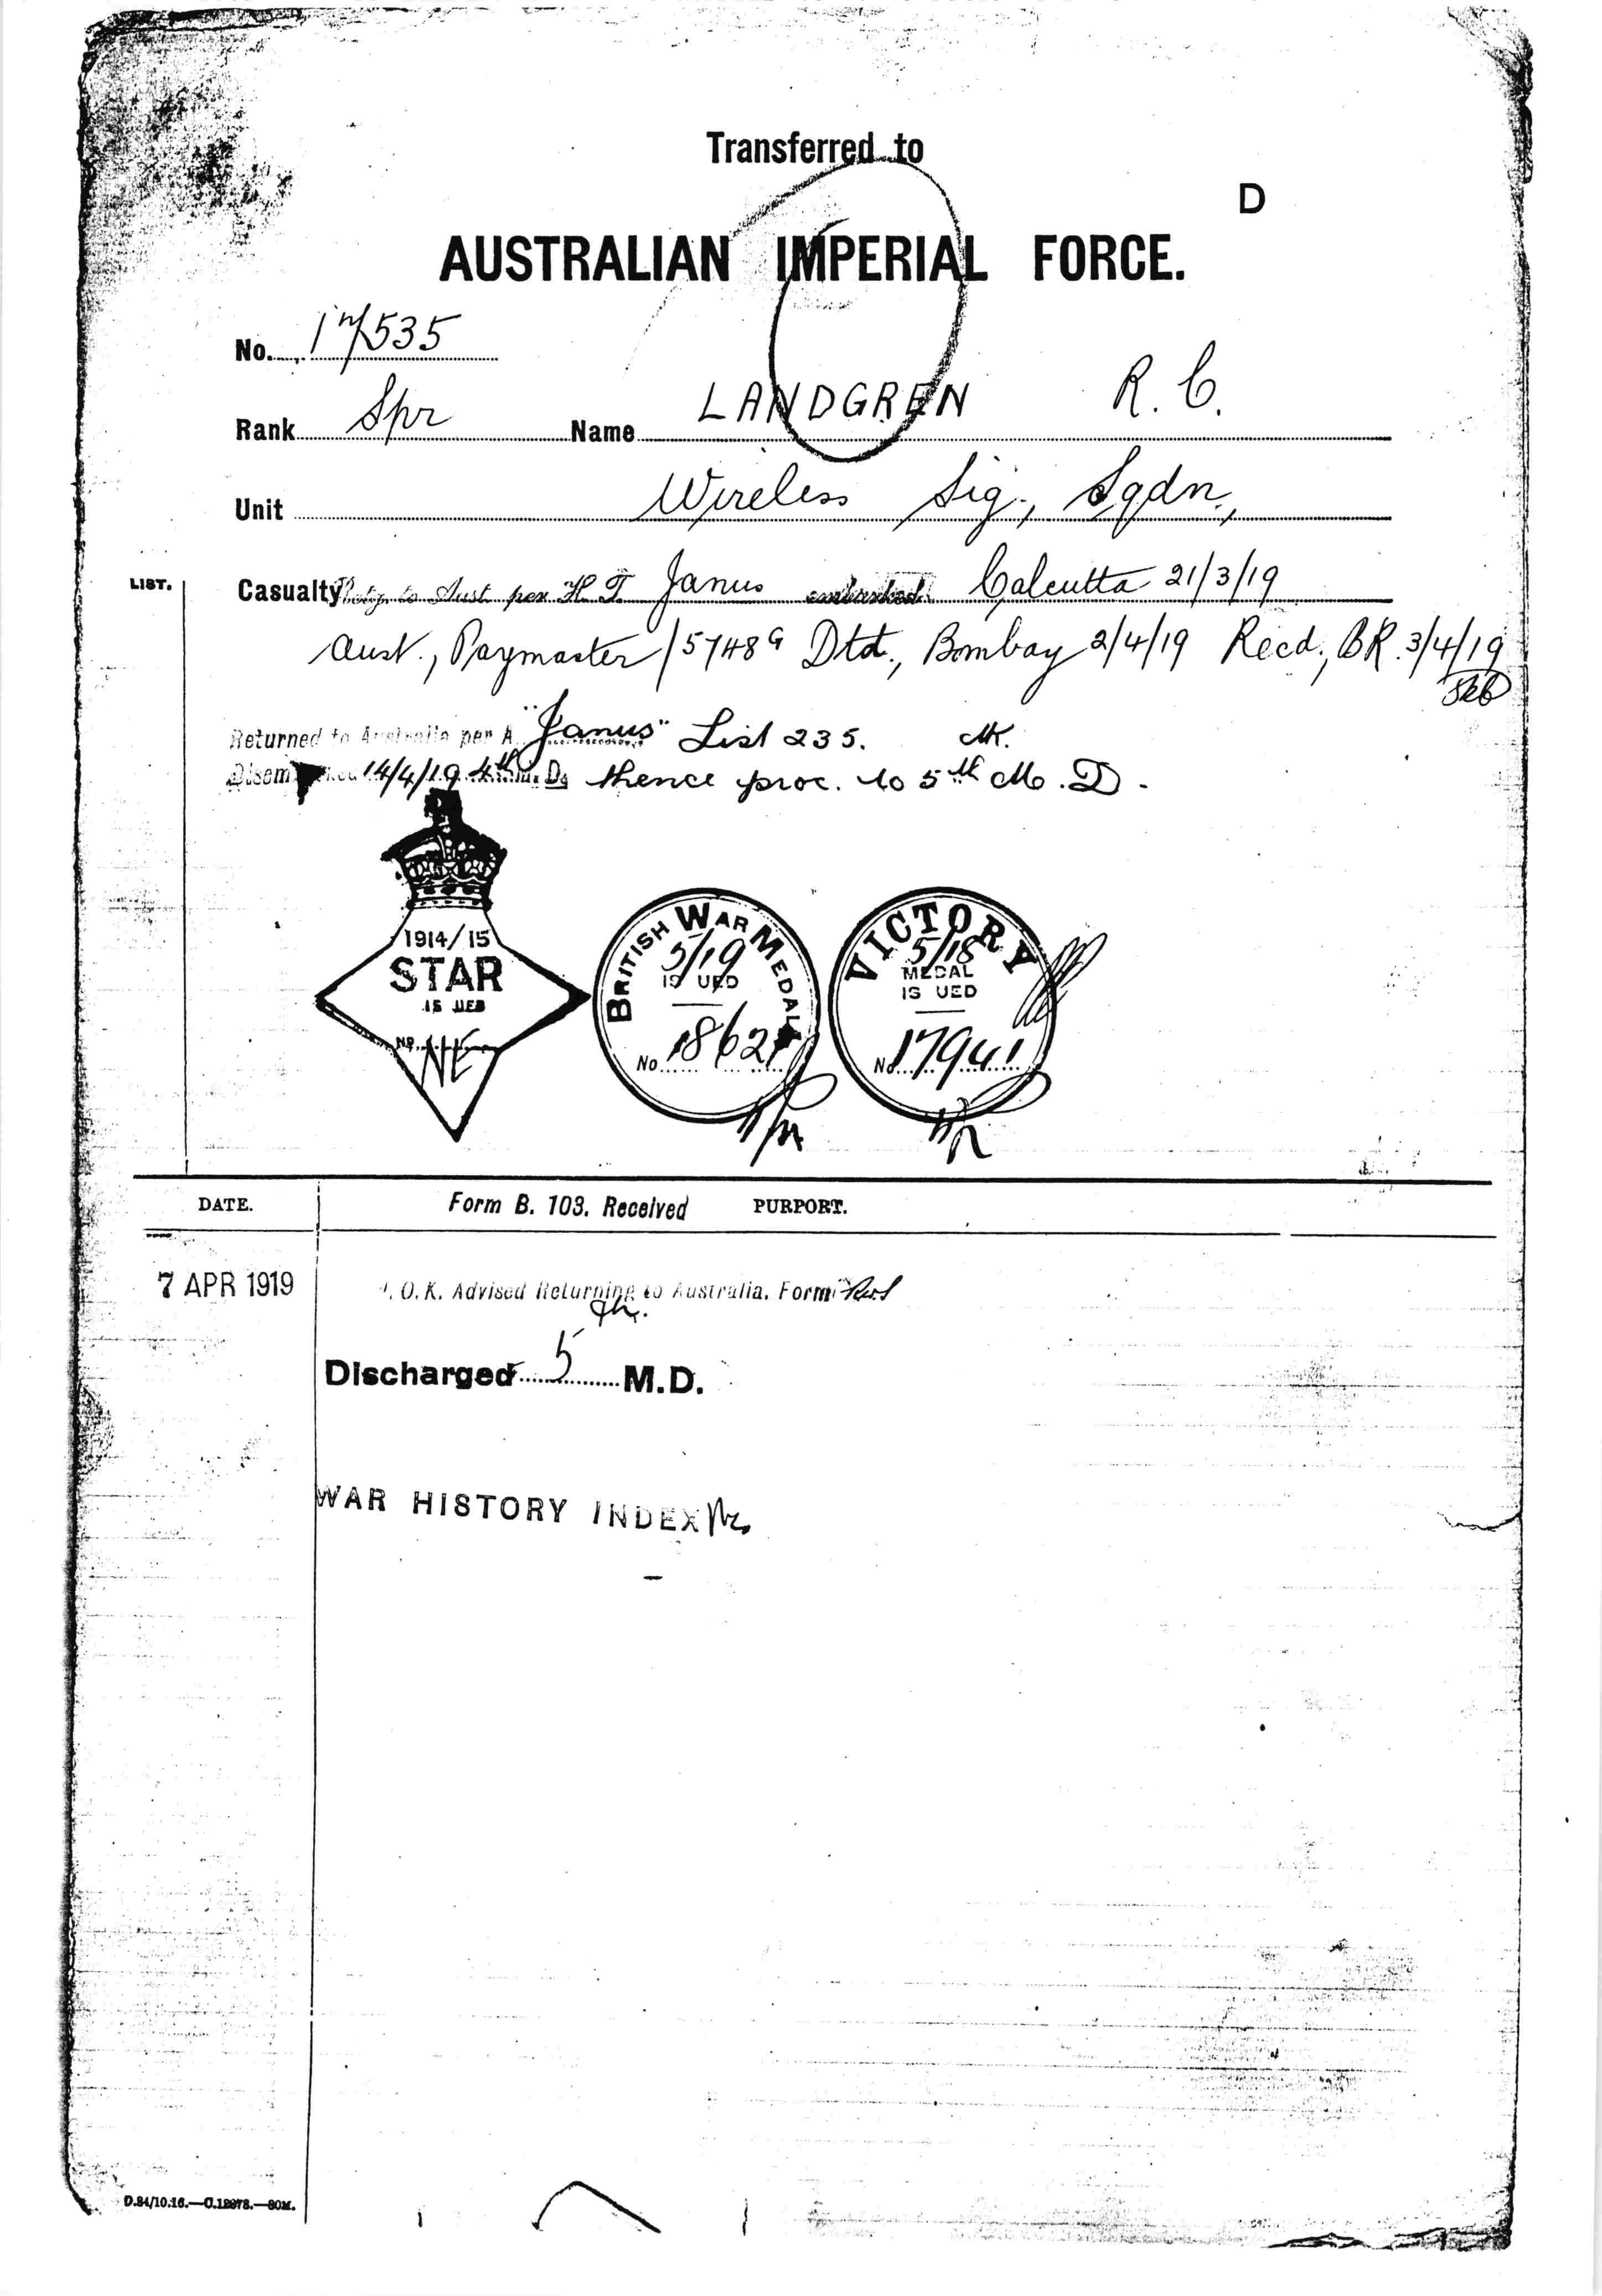 Transferred to
D
AUSTRALIAN IMPERIAL FORCE.
No. 17535
Rank Spr Name LANDGREN R. C.
Unit Wireless Sig., Sqdn.,
LIST.
Casualty Retg. to Aust per H.T. Janus embarked Calcutta 21/3/19
Aust., Paymaster Dtd., Bombay 2/4/19 Recd., BR. 3/4/19
Returned to Australia per "Janus" List 235.
14/4/19 4th M.D. thence proc. to 5th M.D.
1914/15
STAR
IS UED
No. NE
BRITISH WAR MEDAL
5/19
IS UED
No 18621
VICTORY
5/18
MEDAL
IS UED
No. 17941
DATE. Form B. 103. Received PURPORT.
7 APR 1919 O.K. Advised Returning to Australia. Form
Discharged 5 M.D.
WAR HISTORY INDEX
D.84/10.16.—C.12978.—80M.